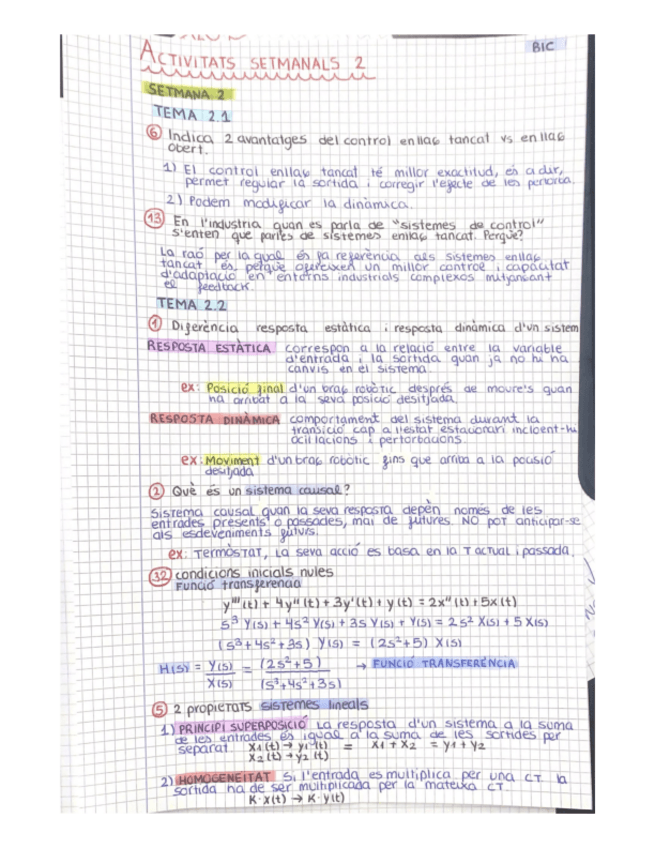 BIC
ACTIVITATS SETMANALS 2
SETMANA 2
TEMA 2.1
⑥ Indica 2 avantatges del control enllaç tancat vs enllaç
obert.
1) El control enllaç tancat té millor exactitud, és a dir,
permet regular la sortida i corregir l'efecte de les pertorba.
2) Podem modificar la dinàmica.
⑬ En l'industria quan es parla de "sistemes de control"
s'enten que parles de sistemes enllaç tancat. Perquè?
La raó per la qual és fa referència als sistemes enllaç
tancat és perquè ofereixen un millor control i capacitat
d'adaptació en entorns industrials complexos mitjançant
el feedback.
TEMA 2.2
① Diferència resposta estàtica i resposta dinàmica d'un sistem
RESPOSTA ESTÀTICA correspon a la relació entre la variable
d'entrada i la sortida quan ja no hi ha
canvis en el sistema.
ex: Posició final d'un braç robòtic després de moure's quan
ha arribat a la seva posició desitjada.
RESPOSTA DINÀMICA comportament del sistema durant la
transició cap a l'estat estacionari incloent-hi
oscil·lacions i pertorbacions.
ex: Moviment d'un braç robòtic fins que arriba a la posició
desitjada
② Què és un sistema causal?
Sistema causal quan la seva resposta depèn només de les
entrades presents o passades, mai de futures. NO pot anticipar-se
als esdeveniments futurs.
ex: TERMÒSTAT, La seva acció es basa en la T actual i passada.
㉜ condicions inicials nules
Funció transferencia
y'''(t) + 4y''(t) + 3y'(t) + y(t) = 2x''(t) + 5x(t)
s³ Y(s) + 4s² Y(s) + 3s Y(s) + Y(s) = 2s² X(s) + 5 X(s)
(s³ + 4s² + 3s) Y(s) = (2s² + 5) X(s)
H(s) = Y(s)/X(s) = (2s² + 5)/(s³ + 4s² + 3s) → FUNCIÓ TRANSFERÈNCIA
⑤ 2 propietats sistemes lineals
1) PRINCIPI SUPERPOSICIÓ La resposta d'un sistema a la suma
de les entrades és igual a la suma de les sortides per
separat x1(t) → y1(t) = x1 + x2 = y1 + y2
x2(t) → y2(t)
2) HOMOGENEITAT Si l'entrada es multiplica per una CT la
sortida ha de ser multiplicada per la mateixa CT.
K·x(t) → K·y(t)